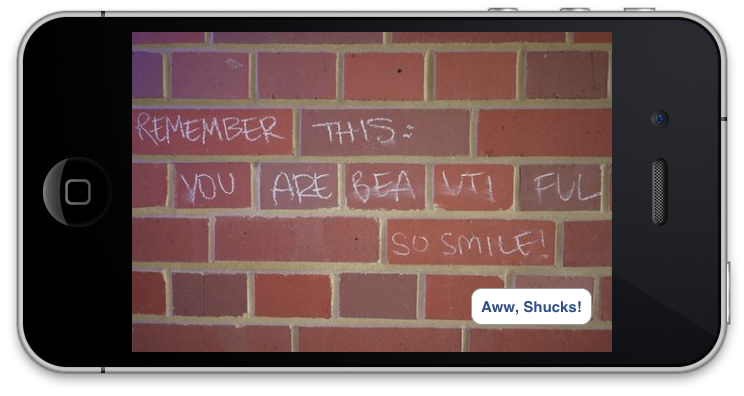 REMEMBER THIS:
YOU ARE BEAUTIFUL
SO SMILE!
Aww, Shucks!